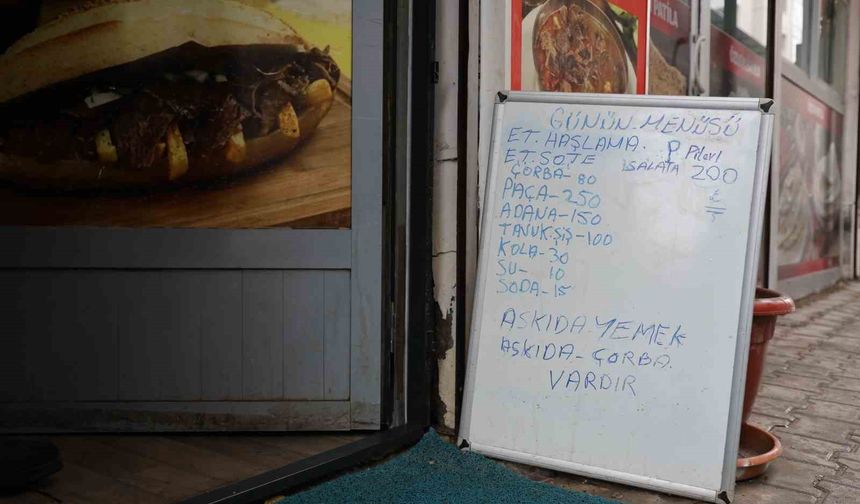 PATİLA
GÜNÜN MENÜSÜ
ET. HAŞLAMA. P. Pilavı
ET. SOTE SALATA 200
ÇORBA-80
PAÇA-250
ADANA-150
TAVUK.ŞİŞ-100
KOLA-30
SU- 10
SODA-15
ASKIDA.YEMEK
ASKIDA-ÇORBA.
VARDIR